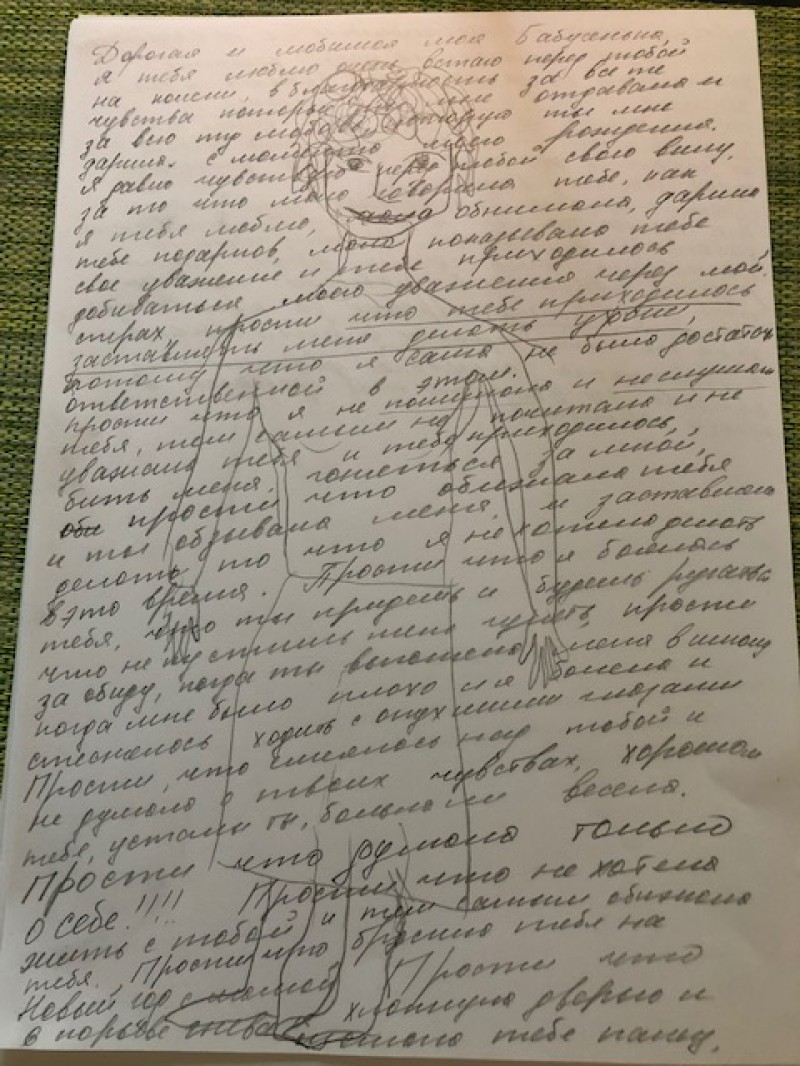 Дорогая и любимая моя Бабусенька,
я тебя люблю очень встаю перед тобой
на колени, в благодарность за все те
чувства которые ты мне отдавала и
за всю ту любовь которую ты мне
дарила с момента моего рождения.
я равно чувствую перед тобой свою вину,
за то что мало говорила тебе, как
я тебя люблю, мало обнимала, дарила
тебе подарков, мало показывала тебе
свое уважение и тебе приходилось
добиваться моего уважения через мой
страх, прости что тебе приходилось
заставлять меня делать уроки,
потому что я сама не была достаточ
ответственной в этом.
прости что я не понимала и не слушала
тебя, тем самым не почитала и не
уважала тебя и тебе приходилось,
бить меня, гоняться за мной,
прости что обижала тебя
и ты обзывала меня, и заставляла
делать то что я не хотела делать
в это время. Прости что я боялась
тебя, что ты придешь и будешь ругаться
что не пустишь меня гулять, прости
за обиду, когда ты выгоняла меня в школу
когда мне было плохо и я болела и
стеснялась ходить с опухшими глазами
Прости, что смеялась над тобой и
не думала о твоих чувствах, хорошо ли
тебе, устала ты, больно ли весело.
Прости что думала только
о себе!!!! Прости что не хотела
жить с тобой и тем самым обижала
тебя. Прости что бросила тебя на
Новый год с мамой Прости что
в порыве гнева хлопнула дверью и
тебе палку.